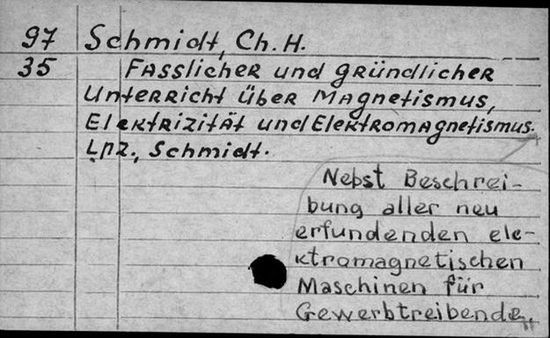 97 Schmidt, Ch. H.
35 Fasslicher und gründlicher
Unterricht über Magnetismus,
Elektrizität und Elektromagnetismus.
Lpz., Schmidt.
Nebst Beschrei-
bung aller neu
erfundenden ele-
ktromagnetischen
Maschinen für
Gewerbtreibende.